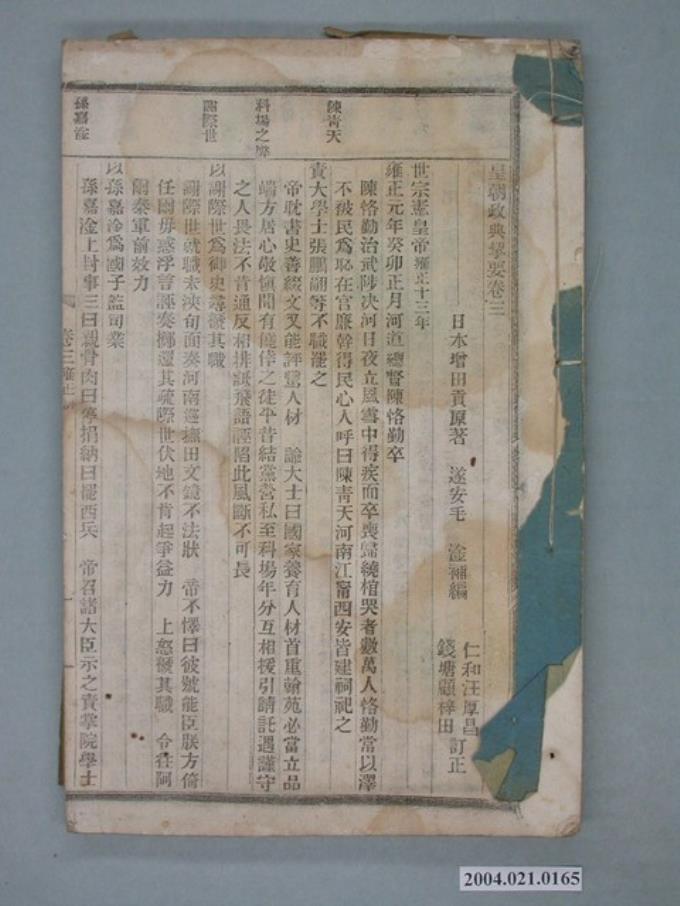 皇朝政典挈要卷三
日本增田貢原著 遂安毛 淦補編 仁和汪厚昌
錢塘顧梓田 訂正
世宗憲皇帝雍正十三年
雍正元年癸卯正月河道總督陳恪勤卒
陳青天
陳恪勤治武陟决河日夜立風雪中得疾而卒喪歸繞棺哭者數萬人恪勤常以澤
不被民爲恥在官廉幹得民心人呼曰陳青天河南江甯西安皆建祠祀之
責大學士張鵬翮等不職罷之
科場之弊
帝耽書史善綴文又能評鑒人材 諭大士曰國家養育人材首重翰苑必當立品
端方居心敬愼聞有僥倖之徒平昔結黨營私至科場年分互相援引請託遇謹守
之人畏法不肯通反相排詆飛語誣陷此風斷不可長
謝際世
以謝際世爲御史尋褫其職
謝際世就職未浹旬面奏河南巡撫田文鏡不法狀 帝不懌曰彼號能臣朕方倚
任爾毋惑浮言誣奏擲還其疏際世伏地不肯起爭益力 上怒褫其職 令往阿
爾泰軍前效力
以孫嘉淦爲國子監司業
孫嘉淦
孫嘉淦上封事三曰親骨肉曰停捐納曰罷西兵 帝召諸大臣示之責掌院學士
卷三雍正
一
2004.021.0165